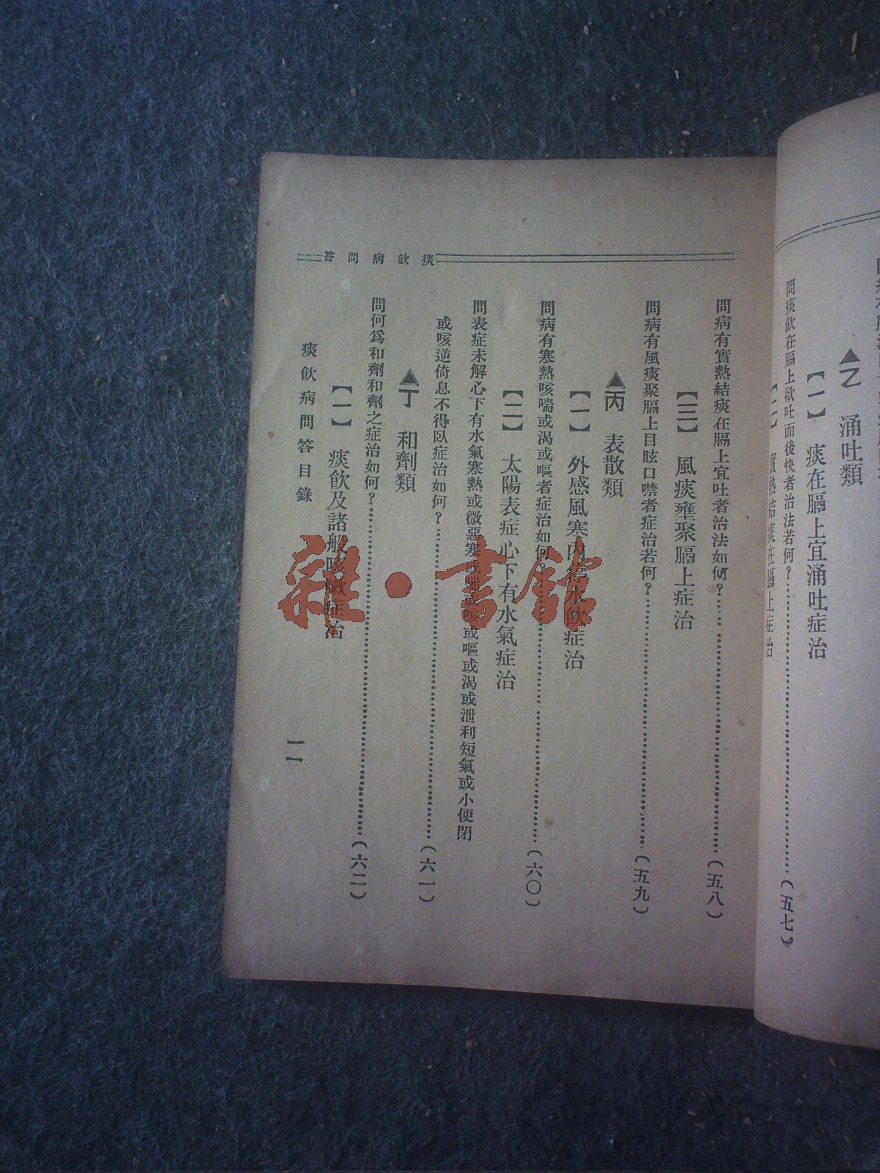 ▲乙　涌吐類
【一】　痰在膈上宜涌吐症治
問痰飲在膈上欲吐而後快者治法若何？……(五七)
【二】　實熱結痰在膈上症治
痰飲病問答
問病有實熱結痰在膈上宜吐者治法如何？……(五八)
【三】　風痰壅聚膈上症治
問病有風痰聚膈上目眩口噤者症治若何？……(五九)
▲丙　表散類
【一】　外感風寒內
水飲症治
問病有寒熱咳喘或渴或嘔者症治如何？……(六〇)
【二】　太陽表症心下有水氣症治
問表症未解心下有水氣寒熱或微惡寒或
或嘔或渴或泄利短氣或小便閉
或咳逆倚息不得臥症治如何？……(六一)
▲丁　和劑類
問何爲和劑和劑之症治如何？……(六二)
【一】　痰飲及諸般咳嗽症治
痰飲病問答目錄
一一
雜·書館